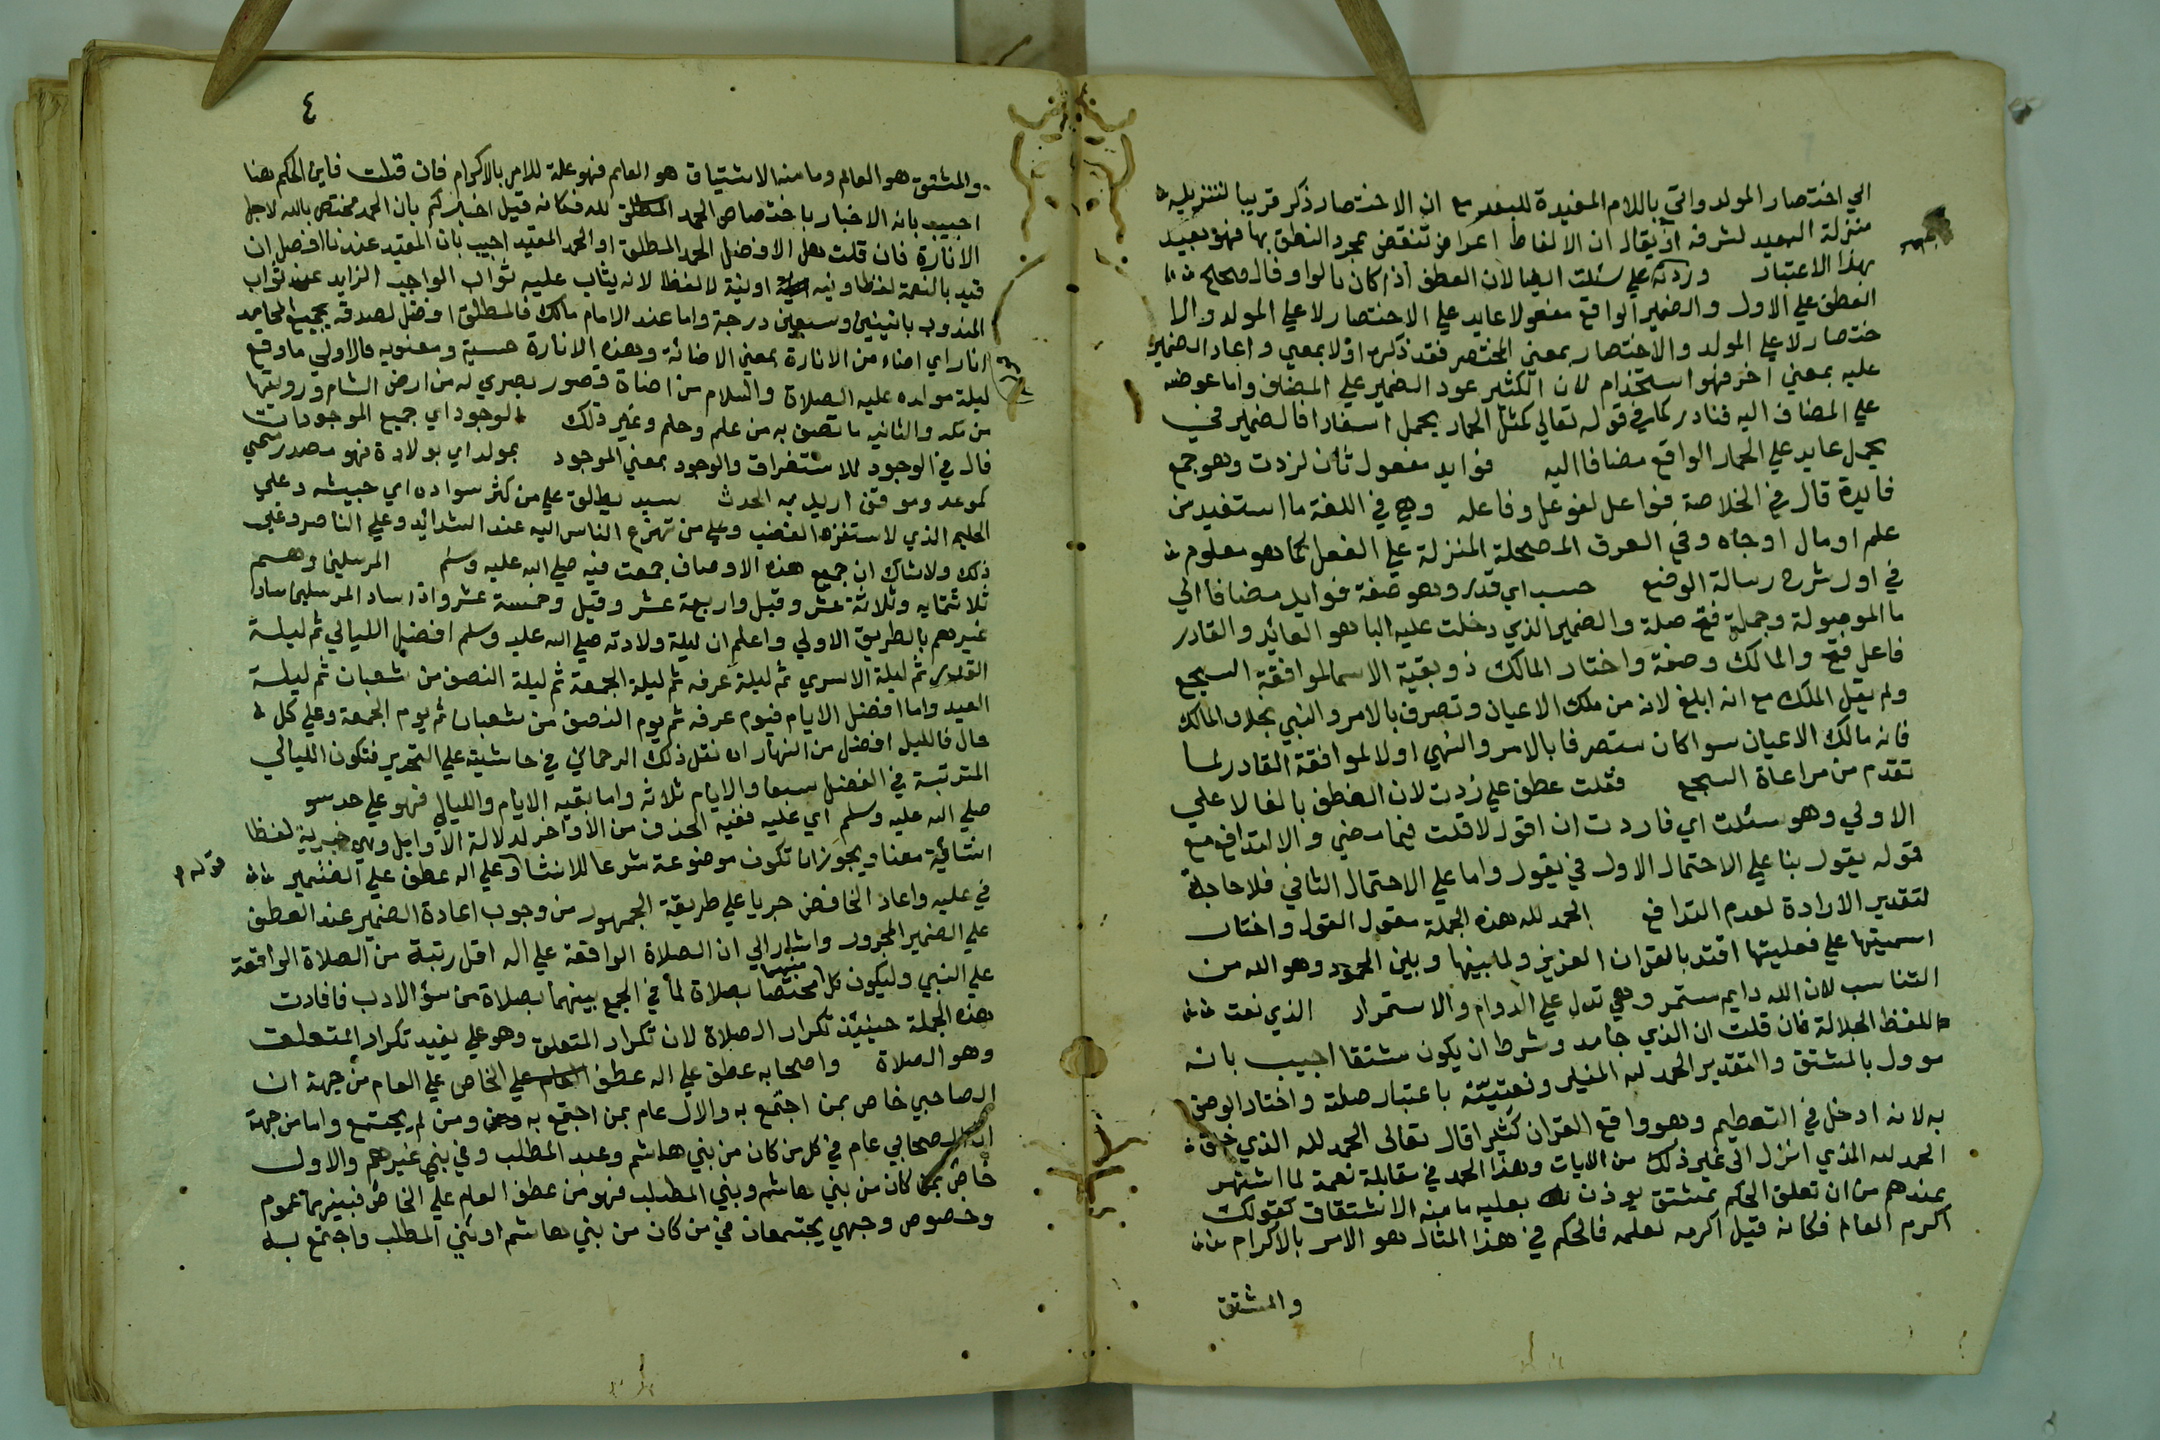 الي اختصار المولد واتي باللام المفيدة للبعد مع ان الاختصار ذكر قريبا لتنزيله
منزلة البعيد لشرفه او يقال ان الالفاظ اعراض تنقضي بمجرد النطق بها فهو بعيد
بهذا الاعتبار وزدته علي سئلت الفا لان العطف اذا كان بالواو فالصحيح
العطف علي الاول والضمير الواقع مفعولا عايد علي الاختصار لا علي المولد والا
ختصار لا علي المولد والاختصار بمعني المختصر فقد ذكره اولا بمعني واعاد الضمير
عليه بمعني اخر فهو استخدام لان الكثير عود الضمير علي المضاف واما عوضه
علي المضاف اليه فنادر كما في قوله تعالي كمثل الحمار يحمل اسفارا فالضمير في
يحمل عايد علي الحمار الواقع مضافا اليه فوايد مفعول ثان لزدت وهو جمع
فايدة قال في الخلاصة فواعل لفوعل وفاعله وهي في اللغة ما استفيد من
علم او مال او جاه وفي العرف المصلحة المنزلة علي الفعل كما هو معلوم
في اول شرح رسالة الوضع حسب اي قدر وهو صفة فوايد مضافا الي
ما الموصولة وجملة فتح صلة والضمير الذي دخلت عليه البا هو العائد والقادر
فاعل فتح والمالك وصفة واختار المالك ذو بقية الاسما لموافقة السجع
ولم يقل الملك مع انه ابلغ لانه من ملك الاعيان وتصرف بالامر والنهي بخلاف المالك
فانه مالك الاعيان سوا كان متصرفا بالامر والنهي او لا لموافقة القادر لما
تقدم من مراعاة السجع فقلت عطف علي زدت لان العطف بالفا لا علي
الاولي وهو سئلت اي فاردت ان اقول لا قلت فيما مضي والا لتدافع مع
قوله يقول بنا علي الاحتمال الاول في يقول واما علي الاحتمال الثاني فلا حاجة
لتقدير الارادة لعدم التدافع الحمد لله هذه الجملة مقول القول واختار
اسميتها علي فعليتها اقتدا بالقران العزيز ولما بينها وبين المحمود وهو الله من
التناسب لان الله دايم مستمر وهي تدل علي الدوام والاستمرار الذي نعت
للفظ الجلالة فان قلت ان الذي جامد وشرط ان يكون مشتقا اجيب بانه
موول بالمشتق والتقدير الحمد لله المنير ونعتيته باعتبار صلته واختار الوصف
به لانه ادخل في التعظيم وهو واقع القران كثيرا قال تعالى الحمد لله الذي خلق
الحمد لله الذي انزل الى غير ذلك من الايات وهذا الحمد في مقابلة نعمة لما اشتهر
عندهم من ان تعلق الحكم بمشتق يوذن بعليه ما منه الاشتقاق كقولك
اكرم العالم فكانه قيل اكرمه لعلمه فالحكم في هذا المثال هو الامر بالاكرام
والمشتق
٤
والمشتق هو العالم وما منه الاشتياق هو العلم فهو علة للامر بالاكرام فان قلت فاين الحكم هنا
اجيب بانه الاخبار باختصاص الحمد المطلق لله فكانه قيل اخبركم بان الحمد مختص بالله لاجل
الانارة فان قلت هل الافضل الحمد المطلق او الحمد المقيد اجيب بان المقيد عندنا افضل ان
قيد بالنعمة لفظا ونيه او نية لا لفظا لانه يثاب عليه ثواب الواجب الزايد عن ثواب
المندوب باثنين وسبعين درجة واما عند الامام مالك فالمطلق افضل لصدقه بجميع المحامد
انار اي اضاء من الانارة بمعني الاضائة وهذه الانارة حسية ومعنويه فالاولي ما وقع
ليلة مولده عليه الصلاة والسلام من اضاة قصور بصري له من ارض الشام ورويتها
من مكه والثانيه ما تصف به من علم وحلم وغير ذلك الوجود اي جميع الموجودات
فال في الوجود للاستغراق والوجود بمعني الموجود بمولد اي بولادة فهو مصدر ميمي
كموعد وموقف اريد به الحدث سيد يطلق علي من كثر سواده اي جيشه وعلي
الحليم الذي لا ستفزه الغضب وعلي من تهرع الناس اليه عند الشدائد وعلي الناصر وغير
ذلك ولا شك ان جميع هذه الاوصاف جمعت فيه صلي الله عليه وسلم المرسلين وهم
ثلاثمايه وثلاثة عشر وقيل واربعة عشر وقيل وخمسة عشر واذا ساد المرسلين ساد
غيرهم بالطريق الاولي واعلم ان ليلة ولادته صلي الله عليه وسلم افضل الليالي ثم ليلة
القدر ثم ليلة الاسري ثم ليلة عرفه ثم ليلة الجمعة ثم ليلة النصف من شعبان ثم ليلة
العيد واما افضل الايام فيوم عرفه ثم يوم النصف من شعبان ثم يوم الجمعة وعلي كل
حال فالليل افضل من النهار اه نقل ذلك الرحماني في حاشية علي التحرير فتكون الليالي
المترتبة في الفضل سبعا والايام ثلاثه واما بقيه الايام والليالي فهو علي حد سو
صلي الله عليه وسلم اي عليه ففيه الحذف من الاواخر لدلالة الاوايل وهي خبرية لفظا
انشائية معنا ويجوز ان تكون موضوعة شرعا للانشا وعلي اله عطف علي الضمير
قوله
في عليه واعاد الخافض جريا علي طريقة الجمهور من وجوب اعادة الضمير عند العطف
علي الضمير المجرور واشار الي ان الصلاة الواقعة علي اله اقل رتبة من الصلاة الواقعة
علي النبي وليكون كل منهما مختصا بصلاة لما في الجمع بينهما بصلاة من سؤ الادب فافادت
هذه الجملة حينيذ تكرار الصلاة لان تكرار المتعلق وهو علي يفيد تكرار المتعلق
وهو الصلاة واصحابه عطف علي اله عطف العام علي الخاص علي العام من جهة ان
الصاحبي خاص بمن اجتمع به والال عام بمن اجتمع به ومن لم يجتمع واما من جهة
ان الصحابي عام في كل من كان من بني هاشم وعبد المطلب وفي بني غيرهم والاول
خاص بمن كان من بني هاشم وبني المطلب فهو من عطف العام علي الخاص فبينهما عموم
وخصوص وجهي يجتمعان في من كان من بني هاشم او بني المطلب واجتمع به